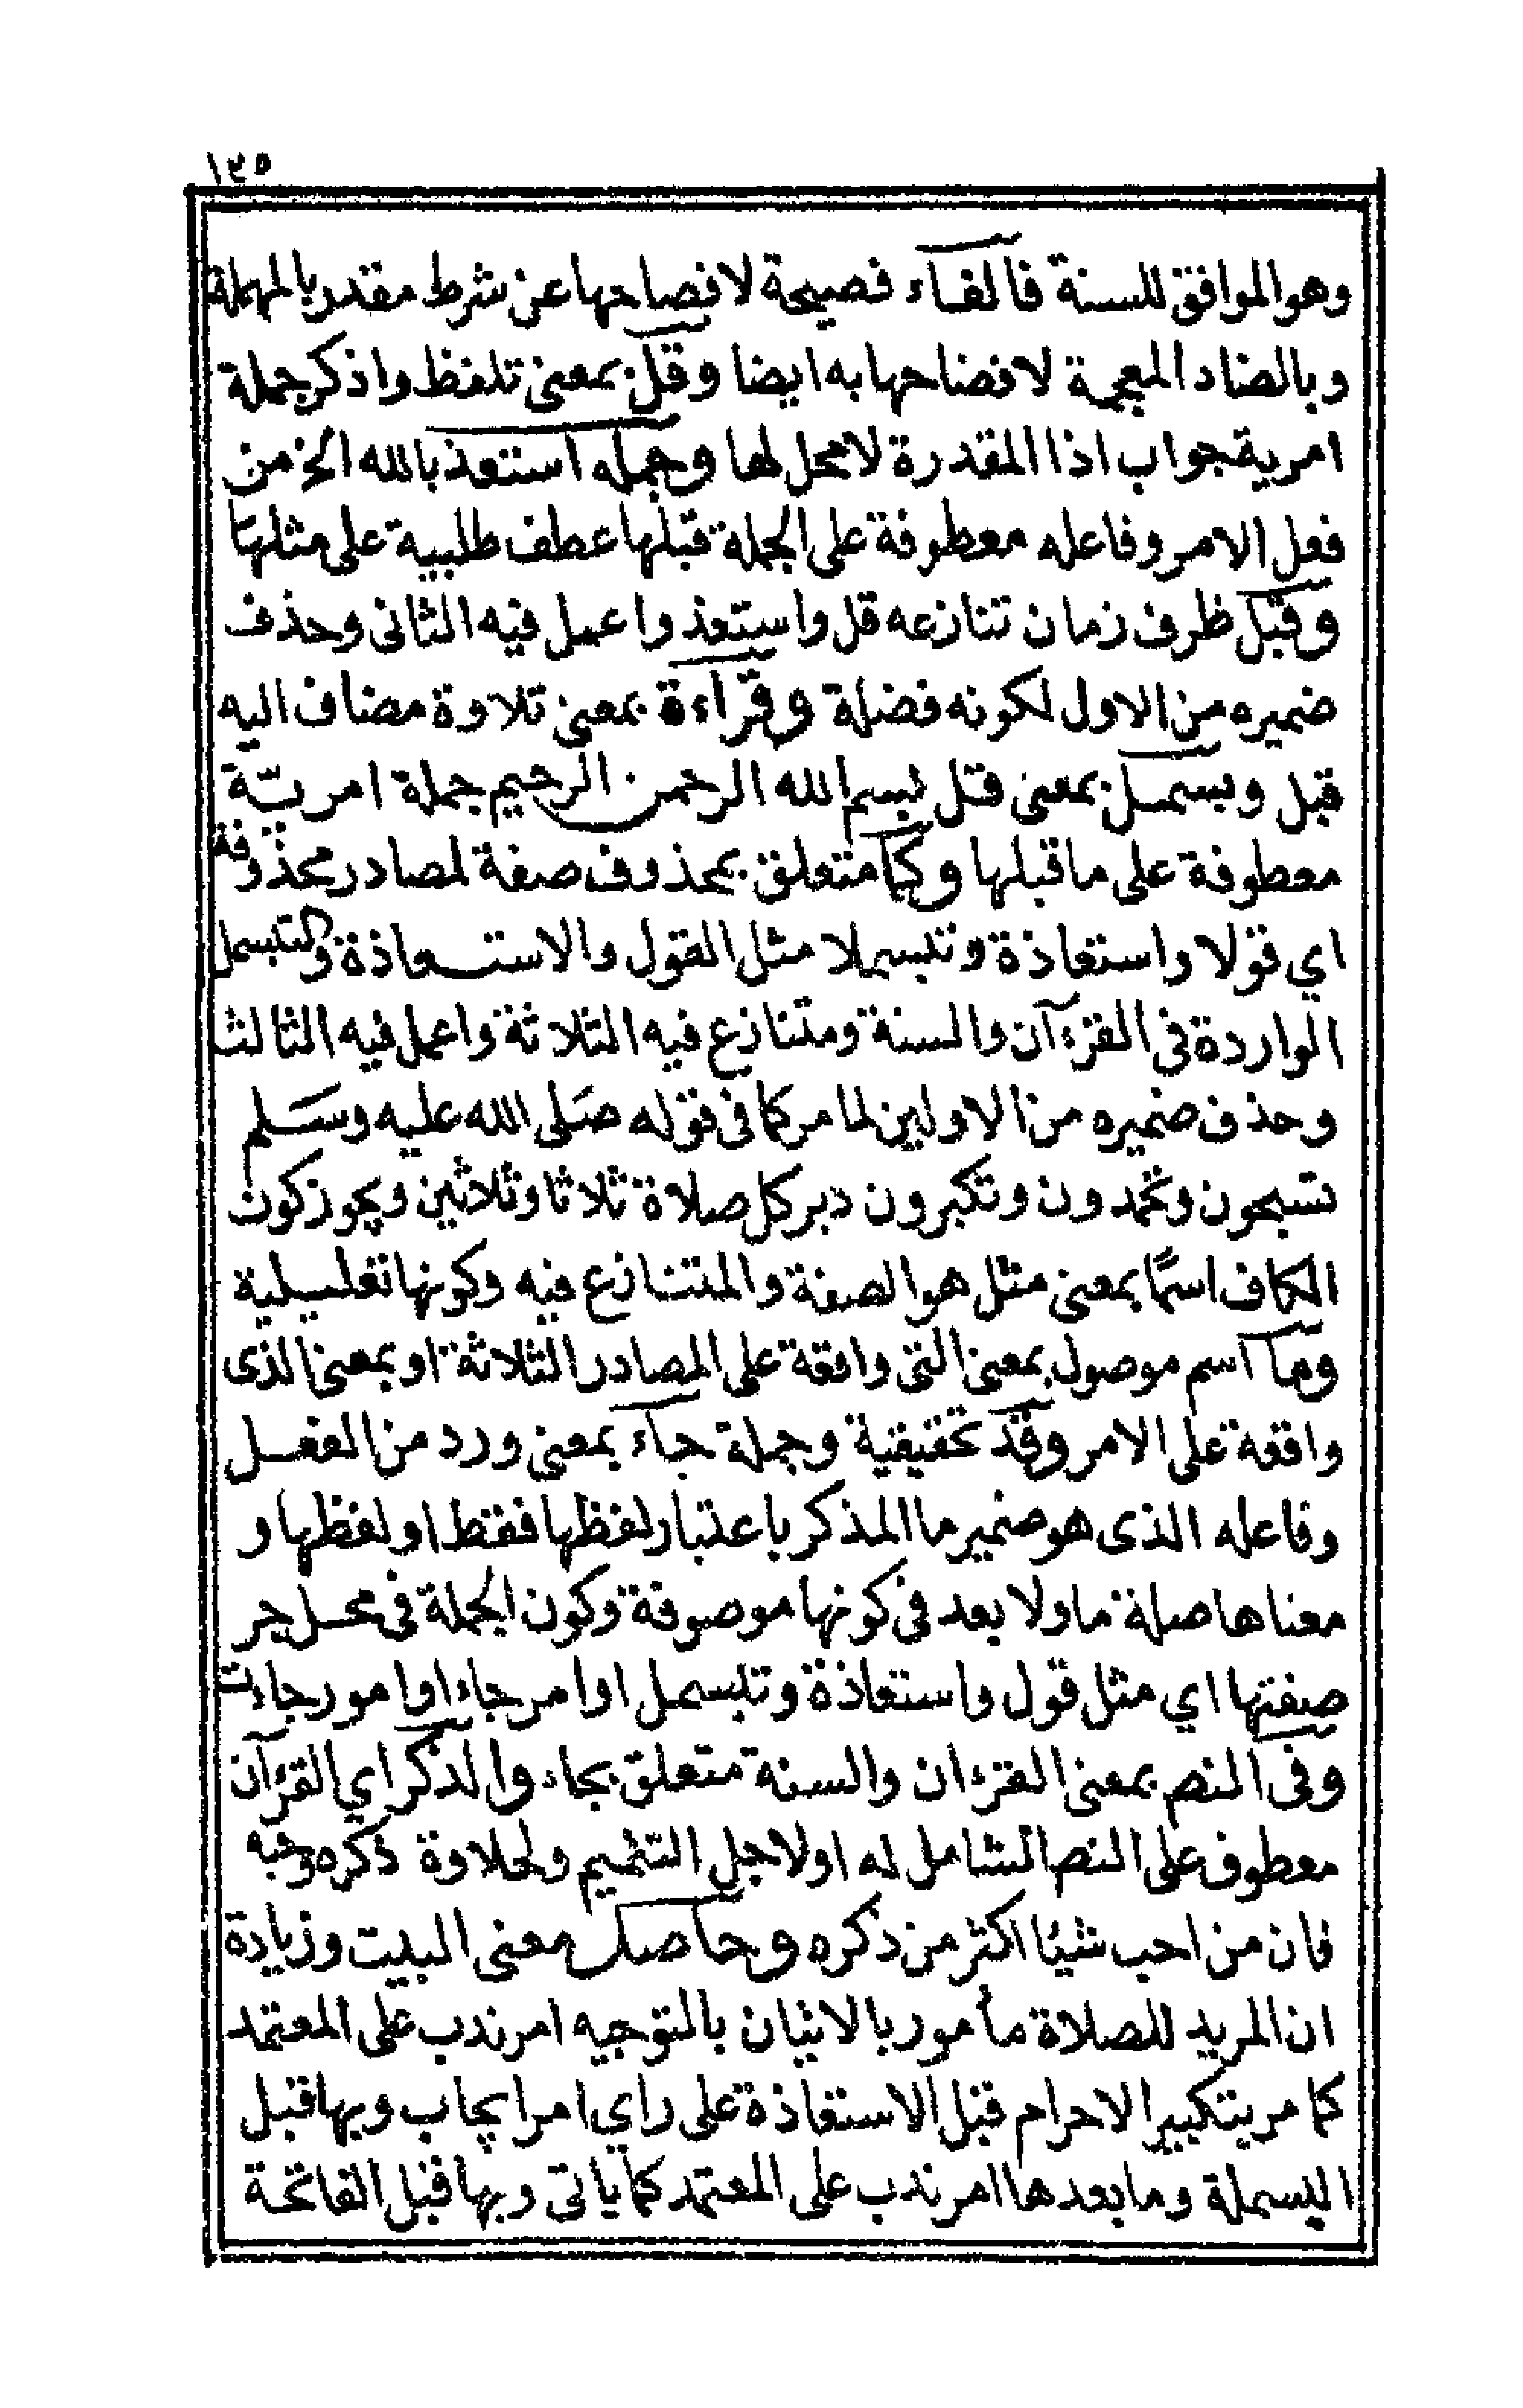 ١٣٥
وهو الموافق للسنة فالفاء فصيحة لافصاحها عن شرط مقدر بالمهملة
وبالضاد المعجمة لافضاحها به ايضا وقل بمعنى تلفظ واذكر جملة
امرية جواب اذا المقدرة لا محل لها وجملة استعذ بالله الخ من
فعل الامر وفاعله معطوفة على الجملة قبلها عطف طلبية على مثلها
وقبل ظرف زمان تنازعه قل واستعذ واعمل فيه الثانى وحذف
ضميره من الاول لكونه فضلة وقراءة بمعنى تلاوة مضاف اليه
قبل وبسمل بمعنى قل بسم الله الرحمن الرحيم جملة امريّة
معطوفة على ما قبلها وكما متعلق بمحذوف صفة لمصادر محذوفة
اي قولا واستعاذة وتبسملا مثل القول والاستعاذة والتبسمل
الواردة فى القرءآن والسنة ومتنازع فيه الثلاثة واعمل فيه الثالث
وحذف ضميره من الاولين لما مر كما فى قوله صَلى الله عليه وسَلم
تسبحون وتحمدون وتكبرون دبر كل صلاة ثلاثا وثلاثين ويجوز كون
الكاف اسمًا بمعنى مثل هو الصفة والمتنازع فيه وكونها تعليلية
وما اسم موصول بمعنى التى واقعة على المصادر الثلاثة او بمعنى الذى
واقعة على الامر وقد تحقيقية وجملة جاء بمعنى ورد من الفعل
وفاعله الذى هو ضمير ما المذكر باعتبار لفظها فقط او لفظها و
معناها صلة ما ولا بعد فى كونها موصوفة وكون الجملة فى محل جر
صفتها اي مثل قول واستعاذة وتبسمل او امر جاء او امور جاءت
وفى النص بمعنى القرءان والسنة متعلق بجاء والذكر اي القرءآن
معطوف على النص الشامل له او لاجل التتميم ولحلاوة ذكره وحبه
فان من احب شيئا اكثر من ذكره وحاصل معنى البيت وزيادة
ان المريد للصلاة مأمور بالاتيان بالتوجيه امر ندب على المعتمد
كما مر بتكبير الاحرام قبل الاستعاذة على راي امر ايجاب وبها قبل
البسملة وما بعدها امر ندب على المعتمد كما ياتى وبها قبل الفاتحة